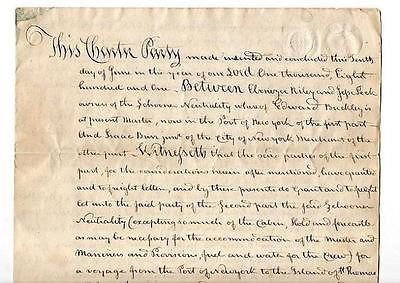 This Charter Party made indented and concluded this Tenth
day of June in the year of our Lord One thousand, Eight
hundred and one Between Ebenezer Riley and Jesse Peck
owners of the Schoone Neutrality whereof Edward Buckley is
at present Master, now in the Port of New york of the first part
And Isaac Burr junr of the City of New york Merchant of the
other part Witnesseth that the said parties of the first
part, for the considerations herein after mentioned, have granted
and to freight letten, and by these presents do Grant and to freight
let unto the said party of the Second part the said Schooner
Neutrality (excepting so much of the Cabin, Hold and forecastle
as may be necessary for the accommodation of the Master and
Mariners and Provisions, fuel and water for the Crew) for
a voyage from the Port of New york to the Island of St Thomas